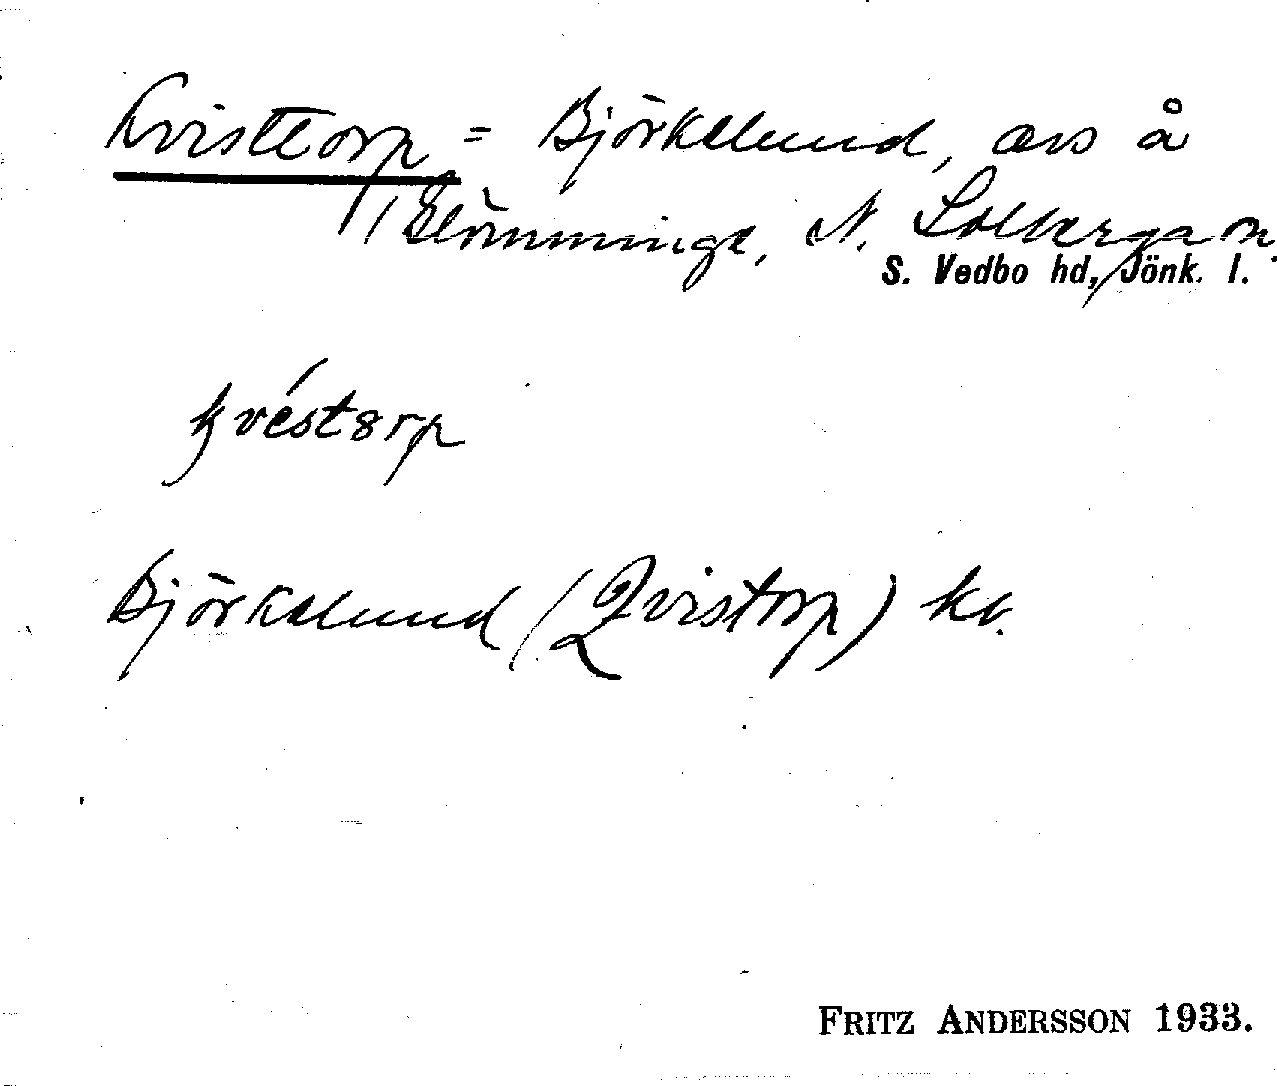 Kvisttorp = Björkelund, avs å
Glömminge, N. Solberga sn
S. Vedbo hd, Jönk. l.
kvéstorp
Björkelund (Qvistorp) kv.
FRITZ ANDERSSON 1933.